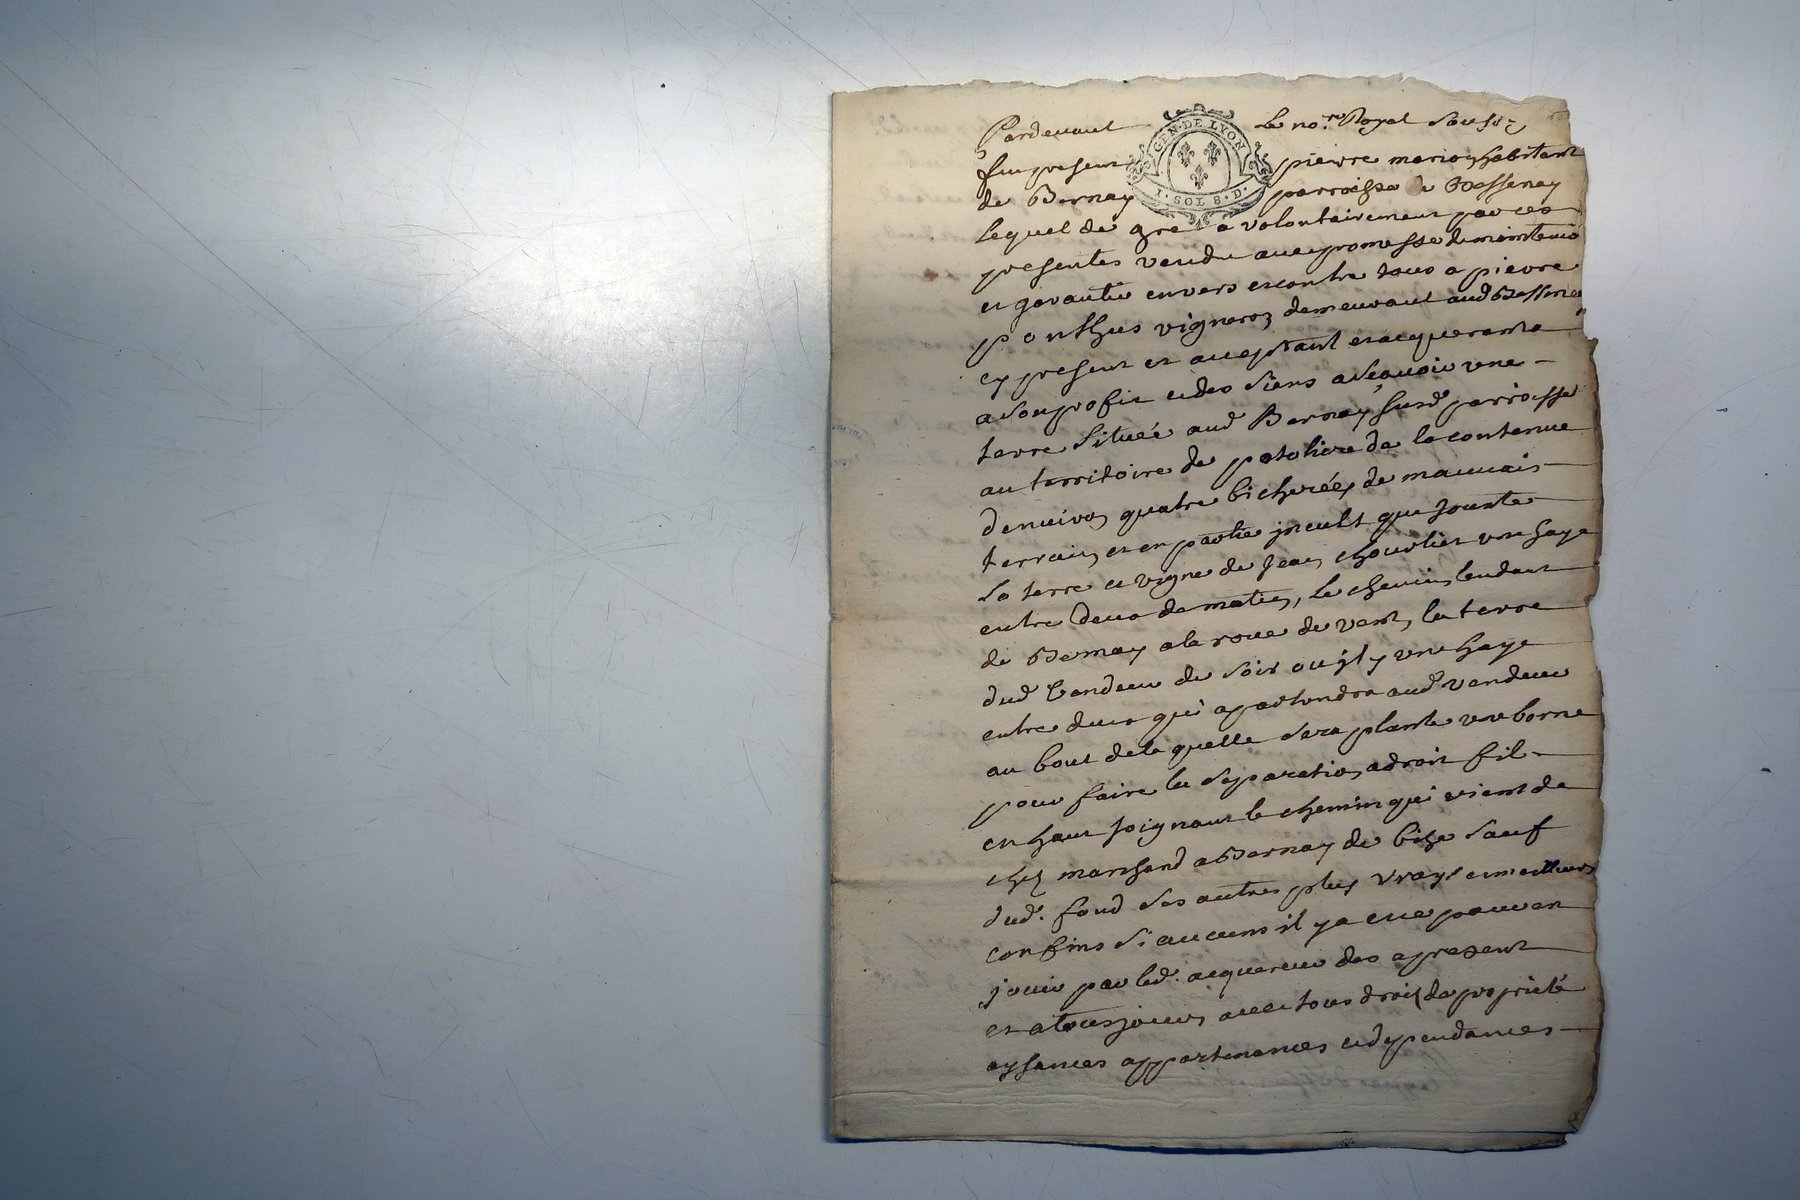 Pardevant le no.re Royal soussig.
GEN·DE LYON
fut present pierre marion habitant
I·SOL 8·D·
de Bernay parroisse de Dessenay
lequel de gre a volontairement par ces
presentes vendu avec promesse de maintenir
et garantir envers et contre tous a pierre
ponthus vigneron demeurant aud Bessenay
cy present et acceptant et acquerant a
a son profit et des siens a sçavoir une
terre située aud Bernay susd parroisse
au territoire de de la contenue
denviron quatre bicherées de mauvais
terrain et en partie jncult que jouxte
la terre et vigne de Jean chourlier une haye
entre deux de matin, le chemin tendant
de Bernay a la roue de vent, la terre
dud vendeur de soir ou jl y une haye
entre deux qui apartendra aud vendeur
au bout de la quelle sera planté une borne
pour faire la separation a droit fil
en haut joignant le chemin qui vient de
chez marchand a Bernay de bize sauf
dud. fond ses autres plus vrays et meilleurs
confins si aucuns il y a et ne pouvoir
jouir par led. acquereur des a present
et a tousjours avec tous droit de proprieté
aysances appartenances et dependances